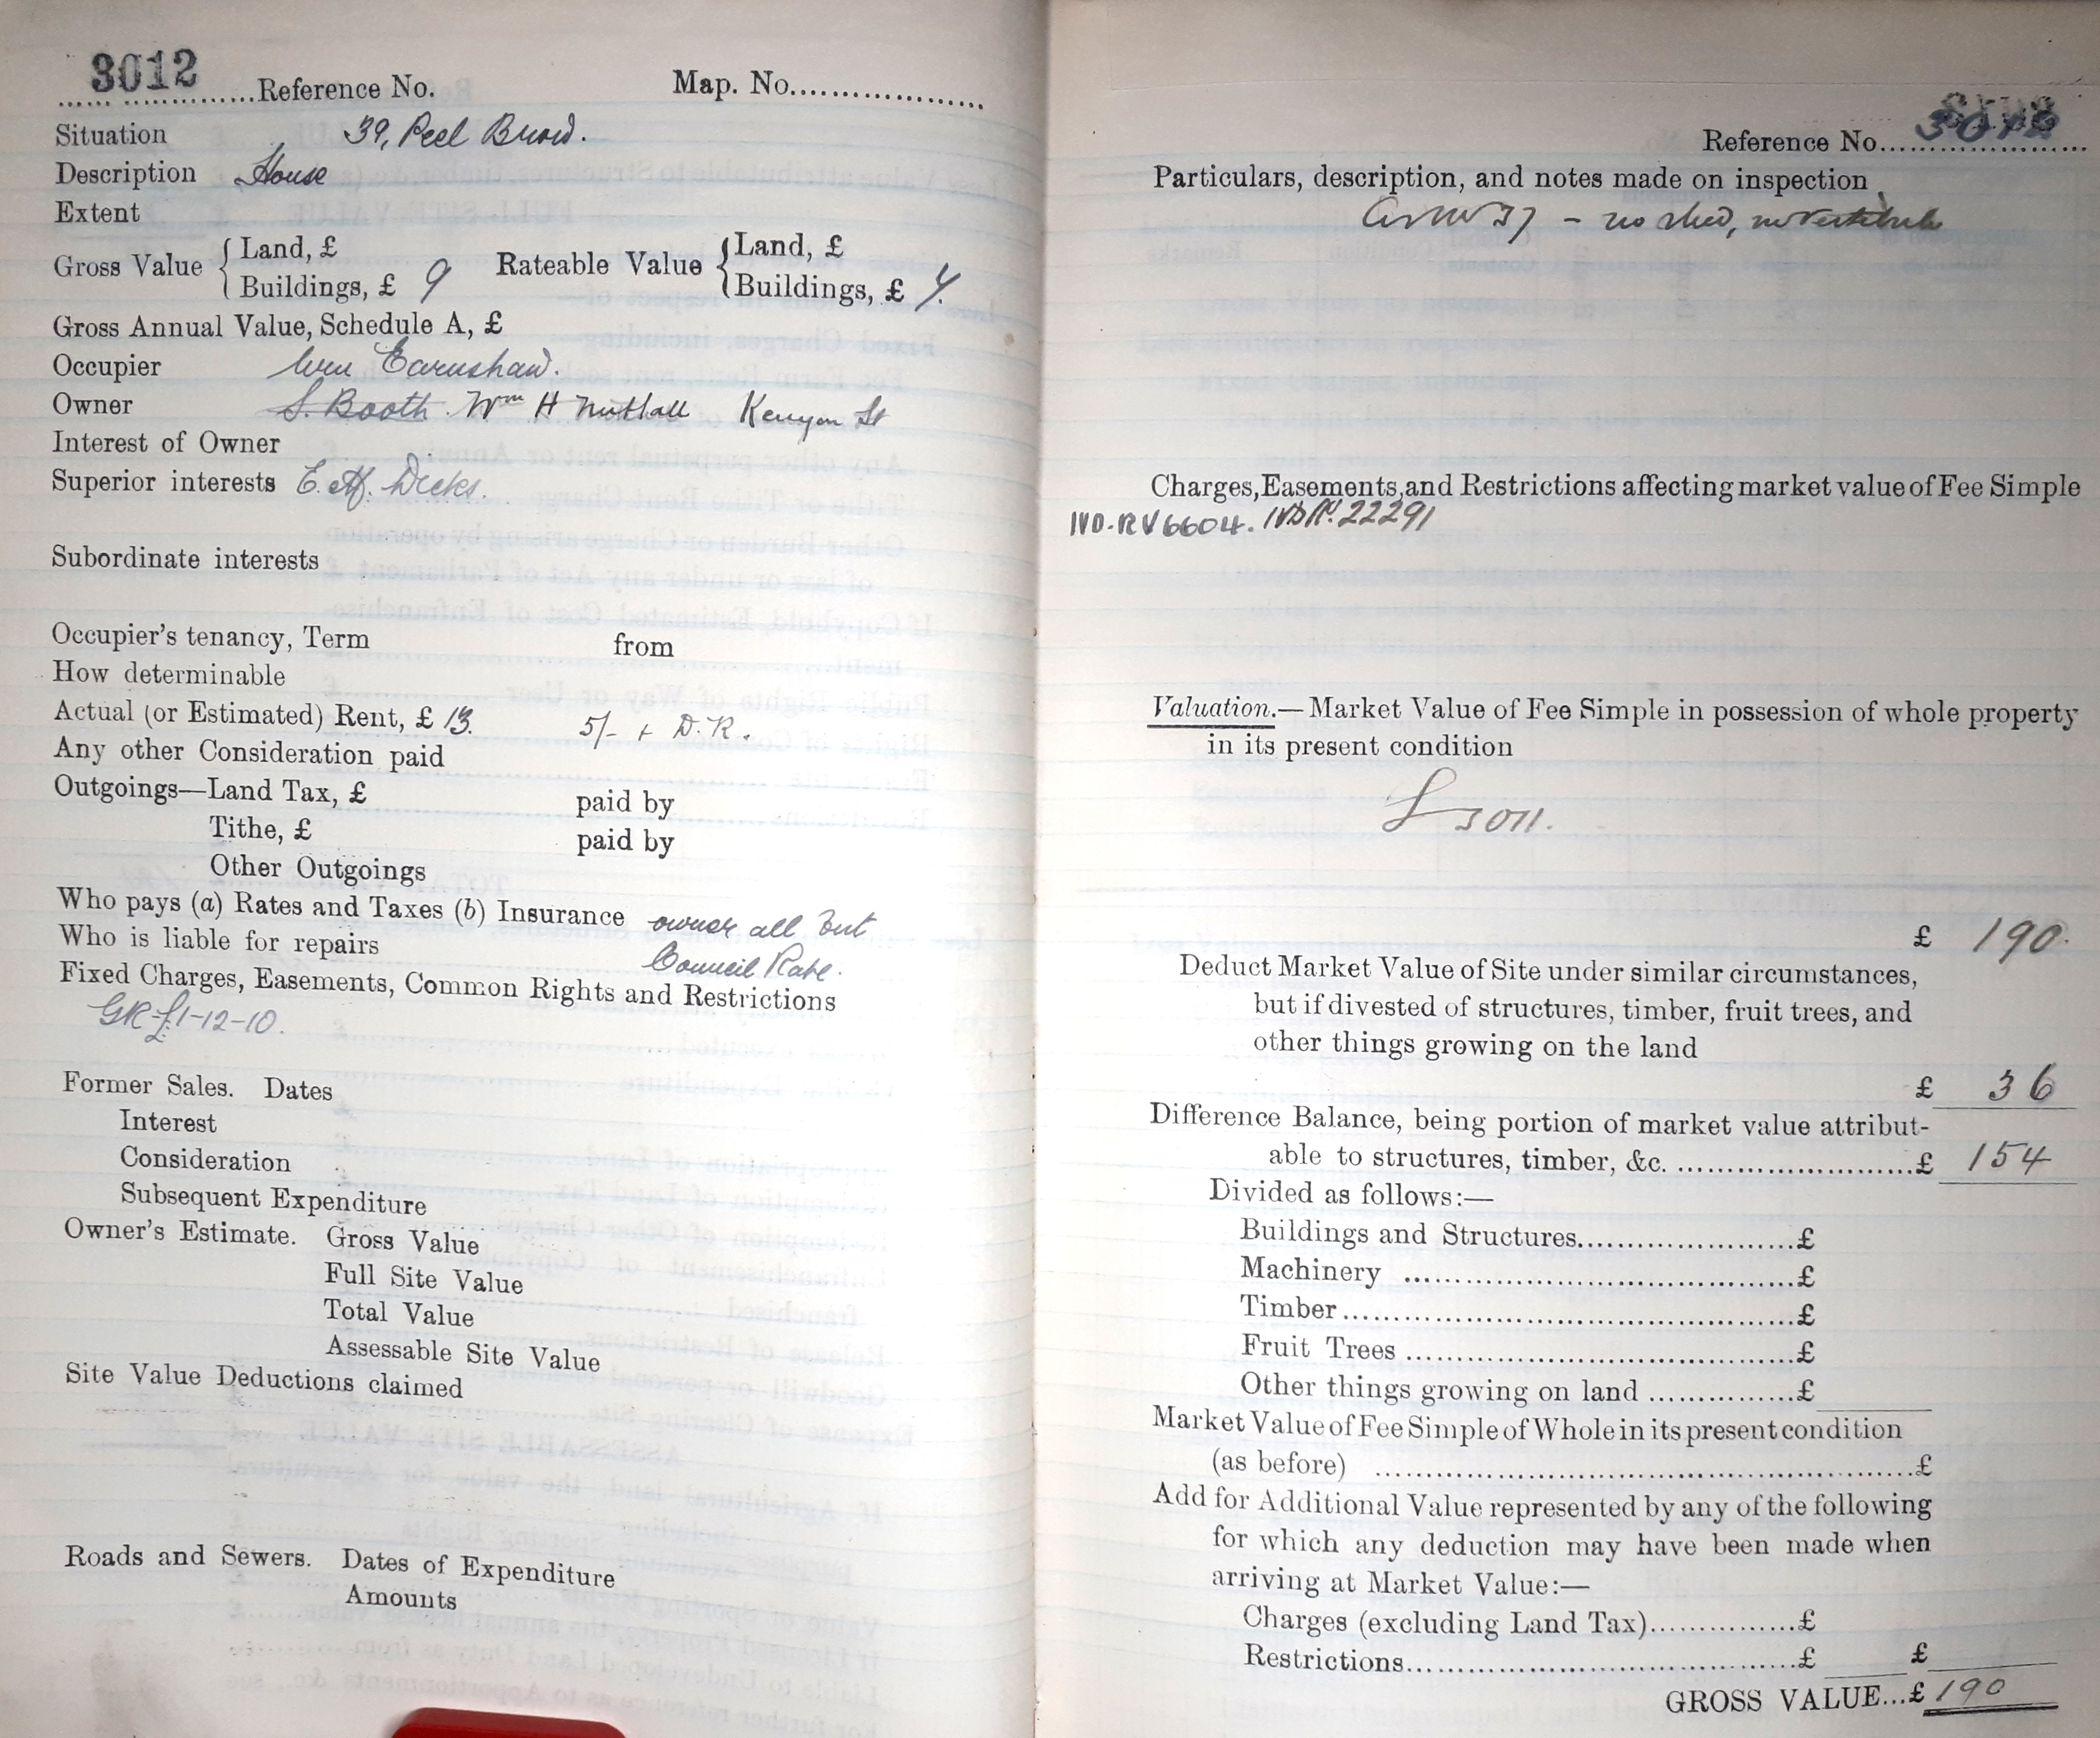 3012 Reference No. Map. No.
Situation 39, Peel Brow.
Description House
Extent
Gross Value { Land, £ Rateable Value { Land, £
Buildings, £ 9 Buildings, £
Gross Annual Value, Schedule A, £
Occupier Wm Earnshaw.
Owner S. Booth. Wm H Nuthall Kenyon St
Interest of Owner
Superior interests E. Hicks.
Subordinate interests
Occupier's tenancy, Term from
How determinable
Actual (or Estimated) Rent, £ 13. 5/- + D.R.
Any other Consideration paid
Outgoings—Land Tax, £ paid by
Tithe, £ paid by
Other Outgoings
Who pays (a) Rates and Taxes (b) Insurance owner all but
Who is liable for repairs Council Rate.
Fixed Charges, Easements, Common Rights and Restrictions
GR £1-12-10.
Former Sales. Dates
Interest
Consideration
Subsequent Expenditure
Owner's Estimate. Gross Value
Full Site Value
Total Value
Assessable Site Value
Site Value Deductions claimed
Roads and Sewers. Dates of Expenditure
Amounts
Reference No. 3012
Particulars, description, and notes made on inspection
As no 37 – no shed, no vestibule
Charges, Easements, and Restrictions affecting market value of Fee Simple
IVD.RV6604. IVD 22291
Valuation.—Market Value of Fee Simple in possession of whole property
in its present condition
£ 3011.
£ 190.
Deduct Market Value of Site under similar circumstances,
but if divested of structures, timber, fruit trees, and
other things growing on the land
£ 36
Difference Balance, being portion of market value attribut-
able to structures, timber, &c. £ 154
Divided as follows:—
Buildings and Structures £
Machinery £
Timber £
Fruit Trees £
Other things growing on land £
Market Value of Fee Simple of Whole in its present condition
(as before) £
Add for Additional Value represented by any of the following
for which any deduction may have been made when
arriving at Market Value:—
Charges (excluding Land Tax) £
Restrictions £ £
GROSS VALUE...£ 190